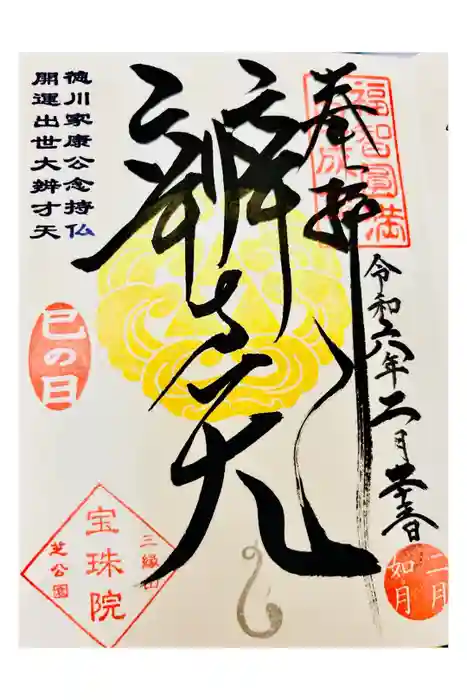 福智圓満
成
奉拝
令和六年二月廿三日
二月
如月
辨才天
徳川家康公念持仏
開運出世大辨才天
巳の日
三縁山
宝珠院
芝公園